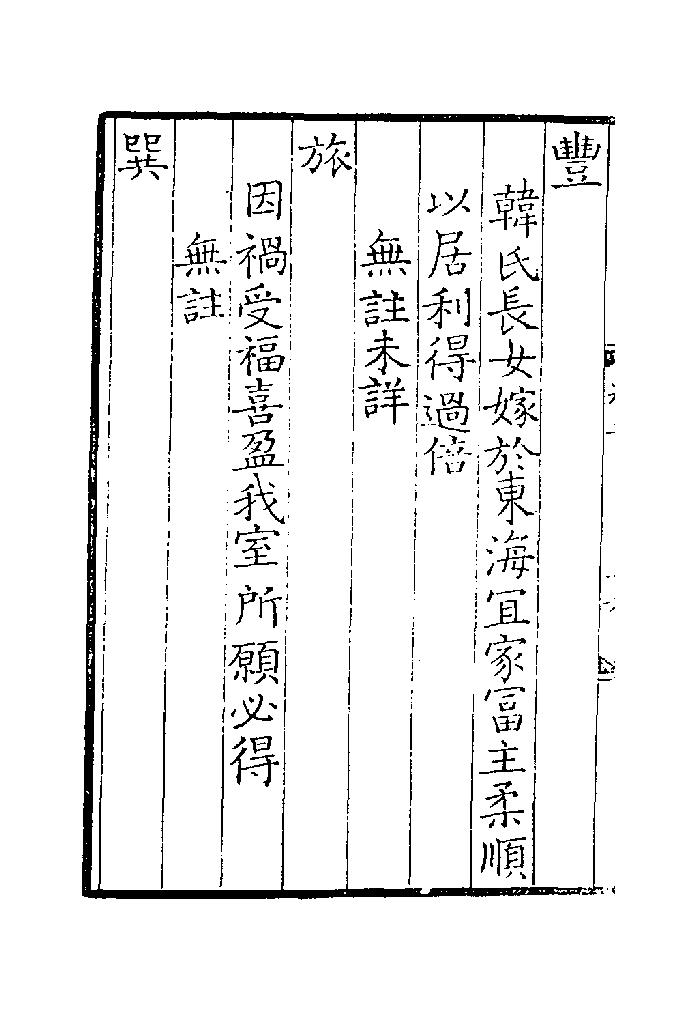 豐
韓氏長女嫁於東海冝家冨主柔順
以居利得過倍
無註未詳
旅
因禍受福喜盈我室所願必得
無註
巽